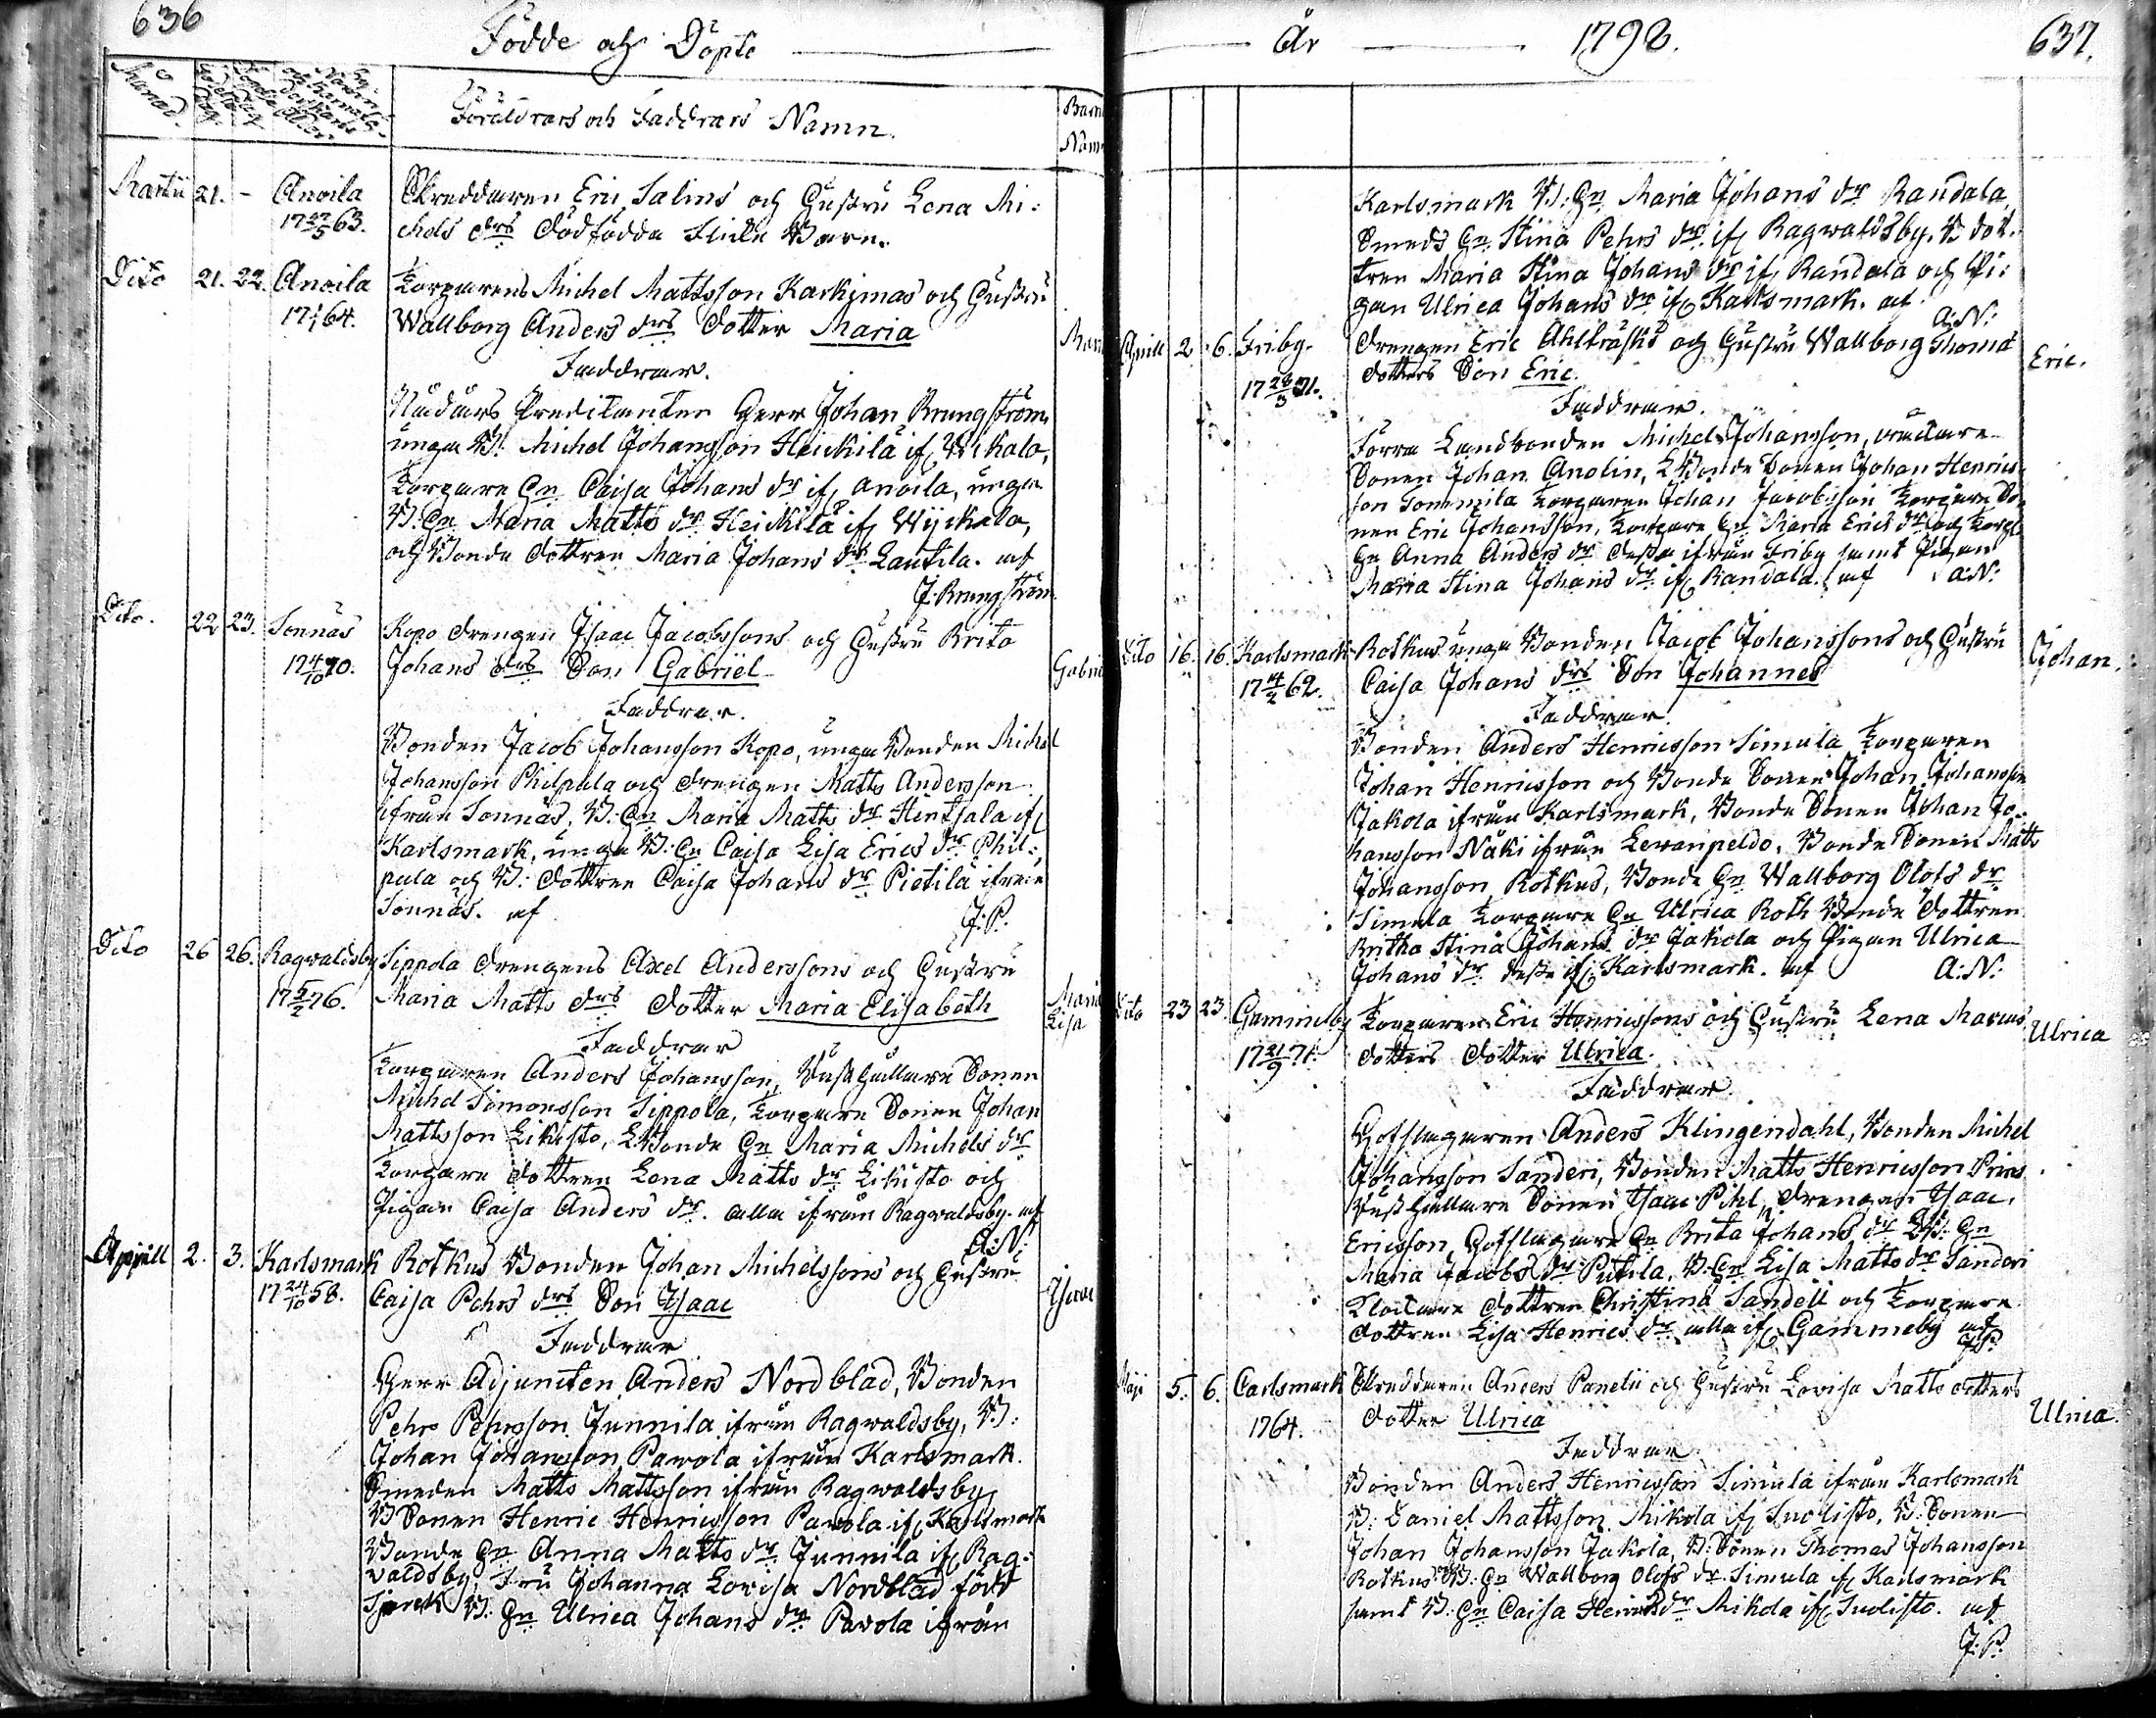 636
Födde och Döpte
Månad.
Föräldrars och Faddrars Namn.
Barn
Namn
Martii 21. - Anoila Skreddaren Eric Salins och Hustru Lena Mi:
17 27/5 63. chels drs dödfödda Flicke Barn.
Dito 21. 22. Anoila Torparens Michel Mattsson Karkimas och Hustru
17 1/1 64. Wallborg Anders drs dotter Maria
Faddrar.
Nådårs Predikanten Herr Johan Brungström,
unga B. Michel Johansson Heickilä if Wikala,
Torpare Hn Caisa Johans dr if anoila, unga
B: Hn Maria Matts dr Heickilä if Wijckala,
och Bonde dottren Maria Johans dr Lautila. af
J. Brungström
Dito. 22 23. Sonnäs Kopo drengen Isaac Jacobssons och Hustru Brita
17 4/10 70. Johans drs Son Gabriel
Faddrar.
Bonden Jacob Johansson Kopo, unga Bonden Michel
Johansson Philpula och drengen Matts Andersson
ifrån Sonnäs, B: Hn Maria Matts dr Hintsala if
Karlsmark, unga B: Hn Caisa Lisa Erics dr Phil:
pula och B: dottren Caisa Johans dr Pietilä ifrån
Sonnäs. af J. P.
Dito 26 26. Ragwaldsby Sippola drengens Axel Anderssons och Hustru
17 5/2 76. Maria Matts drs dotter Maria Elisabeth
Maria
Lisa
Faddrar
Torparen Anders Johansson, Rusthållare Sonen
Michel Simonsson Sippola, Torpare Sonen Johan
Mattsson Likisto, LBonde Hn Maria Michels dr
Torpare dottren Lena Matts dr Likisto och
Pigan Caisa Anders dr. alla ifrån Ragwaldsby. af
A:N:
Appill 2. 3. Karlsmark Rotkus Bonden Johan Michelssons och Hustru
17 24/10 58. Caisa Pehrs drs Son Isaac
Isaac
Faddrar
Herr Adjuncten Anders Nordblad, Bonden
Pehr Pehrsson Junnila ifrån Ragwaldsby, B:
Johan Johansson Pawola ifrån Karlsmark.
Smeden Matts Mattsson ifrån Ragwaldsby
B Sonen Henric Henricsson Pawola if Karlsmark
Bonde Hn Anna Matts dr Junnila if Rag:
waldsby, Fru Johanna Lovisa Nordblad född
B: Hn Ulrica Johans dr Pavola ifrån
År 1798. 637.
Karlsmark B: Hn Maria Johans dr Randala,
Smeds Hn Stina Pehrs dr. if Ragwaldsby. B dot:
tren Maria Stina Johans dr if Randala och Pi:
gan Ulrica Johans dr if Karlsmark. af
A:N:
Apill 2. 6. Friby. Drengen Eric Ahlträsks och Hustru Wallborg Thomæ
17 28/3 71. dotters Son Eric. Eric.
Faddrar.
Förra Landbonden Michel Johansson,
Sonen Johan Anolin, LBonde Sonen Johan Henrics
son Tommila Torparen Johan Jacobsson Torpare So
nen Eric Johansson, Torpare Hn Maria Erics dr och Torp
Hn Anna Anders dr dessa ifrån Friby samt Pigan
Maria Stina Johans dr if Randala. af A:N:
Dito 16. 16. Karlsmark Rotkus unga Bonden Jacob Johanssons och Hustru
17 14/2 62. Caisa Johans drs Son Johannes Johan.
Faddrar.
Bonden Anders Henricsson Simula Torparen
Johan Henricsson och Bonde Sonen Johan Johansson
Jakola ifrån Karlsmark, Bonde Sonen Johan Jo:
hansson Näki ifrån Lewanpeldo, Bonde Sonen Matts
Johansson Rotkus, Bonde Hn Wallborg Olofs dr
Simula Torpare Hn Ulrica Roth Bonde dottren
Britha Stina Johans dr Jakola och Pigan Ulrica
Johans dr dessa if Karlsmark. af A:N:
Dito 23 23. Gammelby Torparen Eric Henricssons och Hustru Lena Marcus
17 21/9 71. dotters dotter Ulrica. Ulrica
Faddrar.
Hofslagaren Anders Klingendahl, Bonden Michel
Johansson Sanderi, Bonden Matts Henricsson Prins
Rusthållare Sonen Isaac Pihl, drengen Isaac
Ericsson, Hofslagare Hn Brita Johans dr LB: Hn
Maria Jacobs dr Putila, B: Hn Lisa Matts dr Sanderi
Klockare dottren Christina Sandell och Torpare
dottren Lisa Henrics dr alla if Gammelby af
J.P.
Maji 5. 6. Carlsmark Skreddaren Anders Panelii och Hustru Lovisa Matts dotters
1764. dotter Ulrica Ulrica.
Faddrar
Bonden Anders Henricsson Simula ifrån Karlsmark
B: Daniel Mattsson Mikola if Suolisto, B: Sonen
Johan Johansson Jakola, B: Sonen Thomas Johansson
Rotkus B: Hn Wallborg Olofs dr. Simula if Karlsmark
samt B: Hn Caisa Henrics dr Mikola if Suolisto. af
J. P.